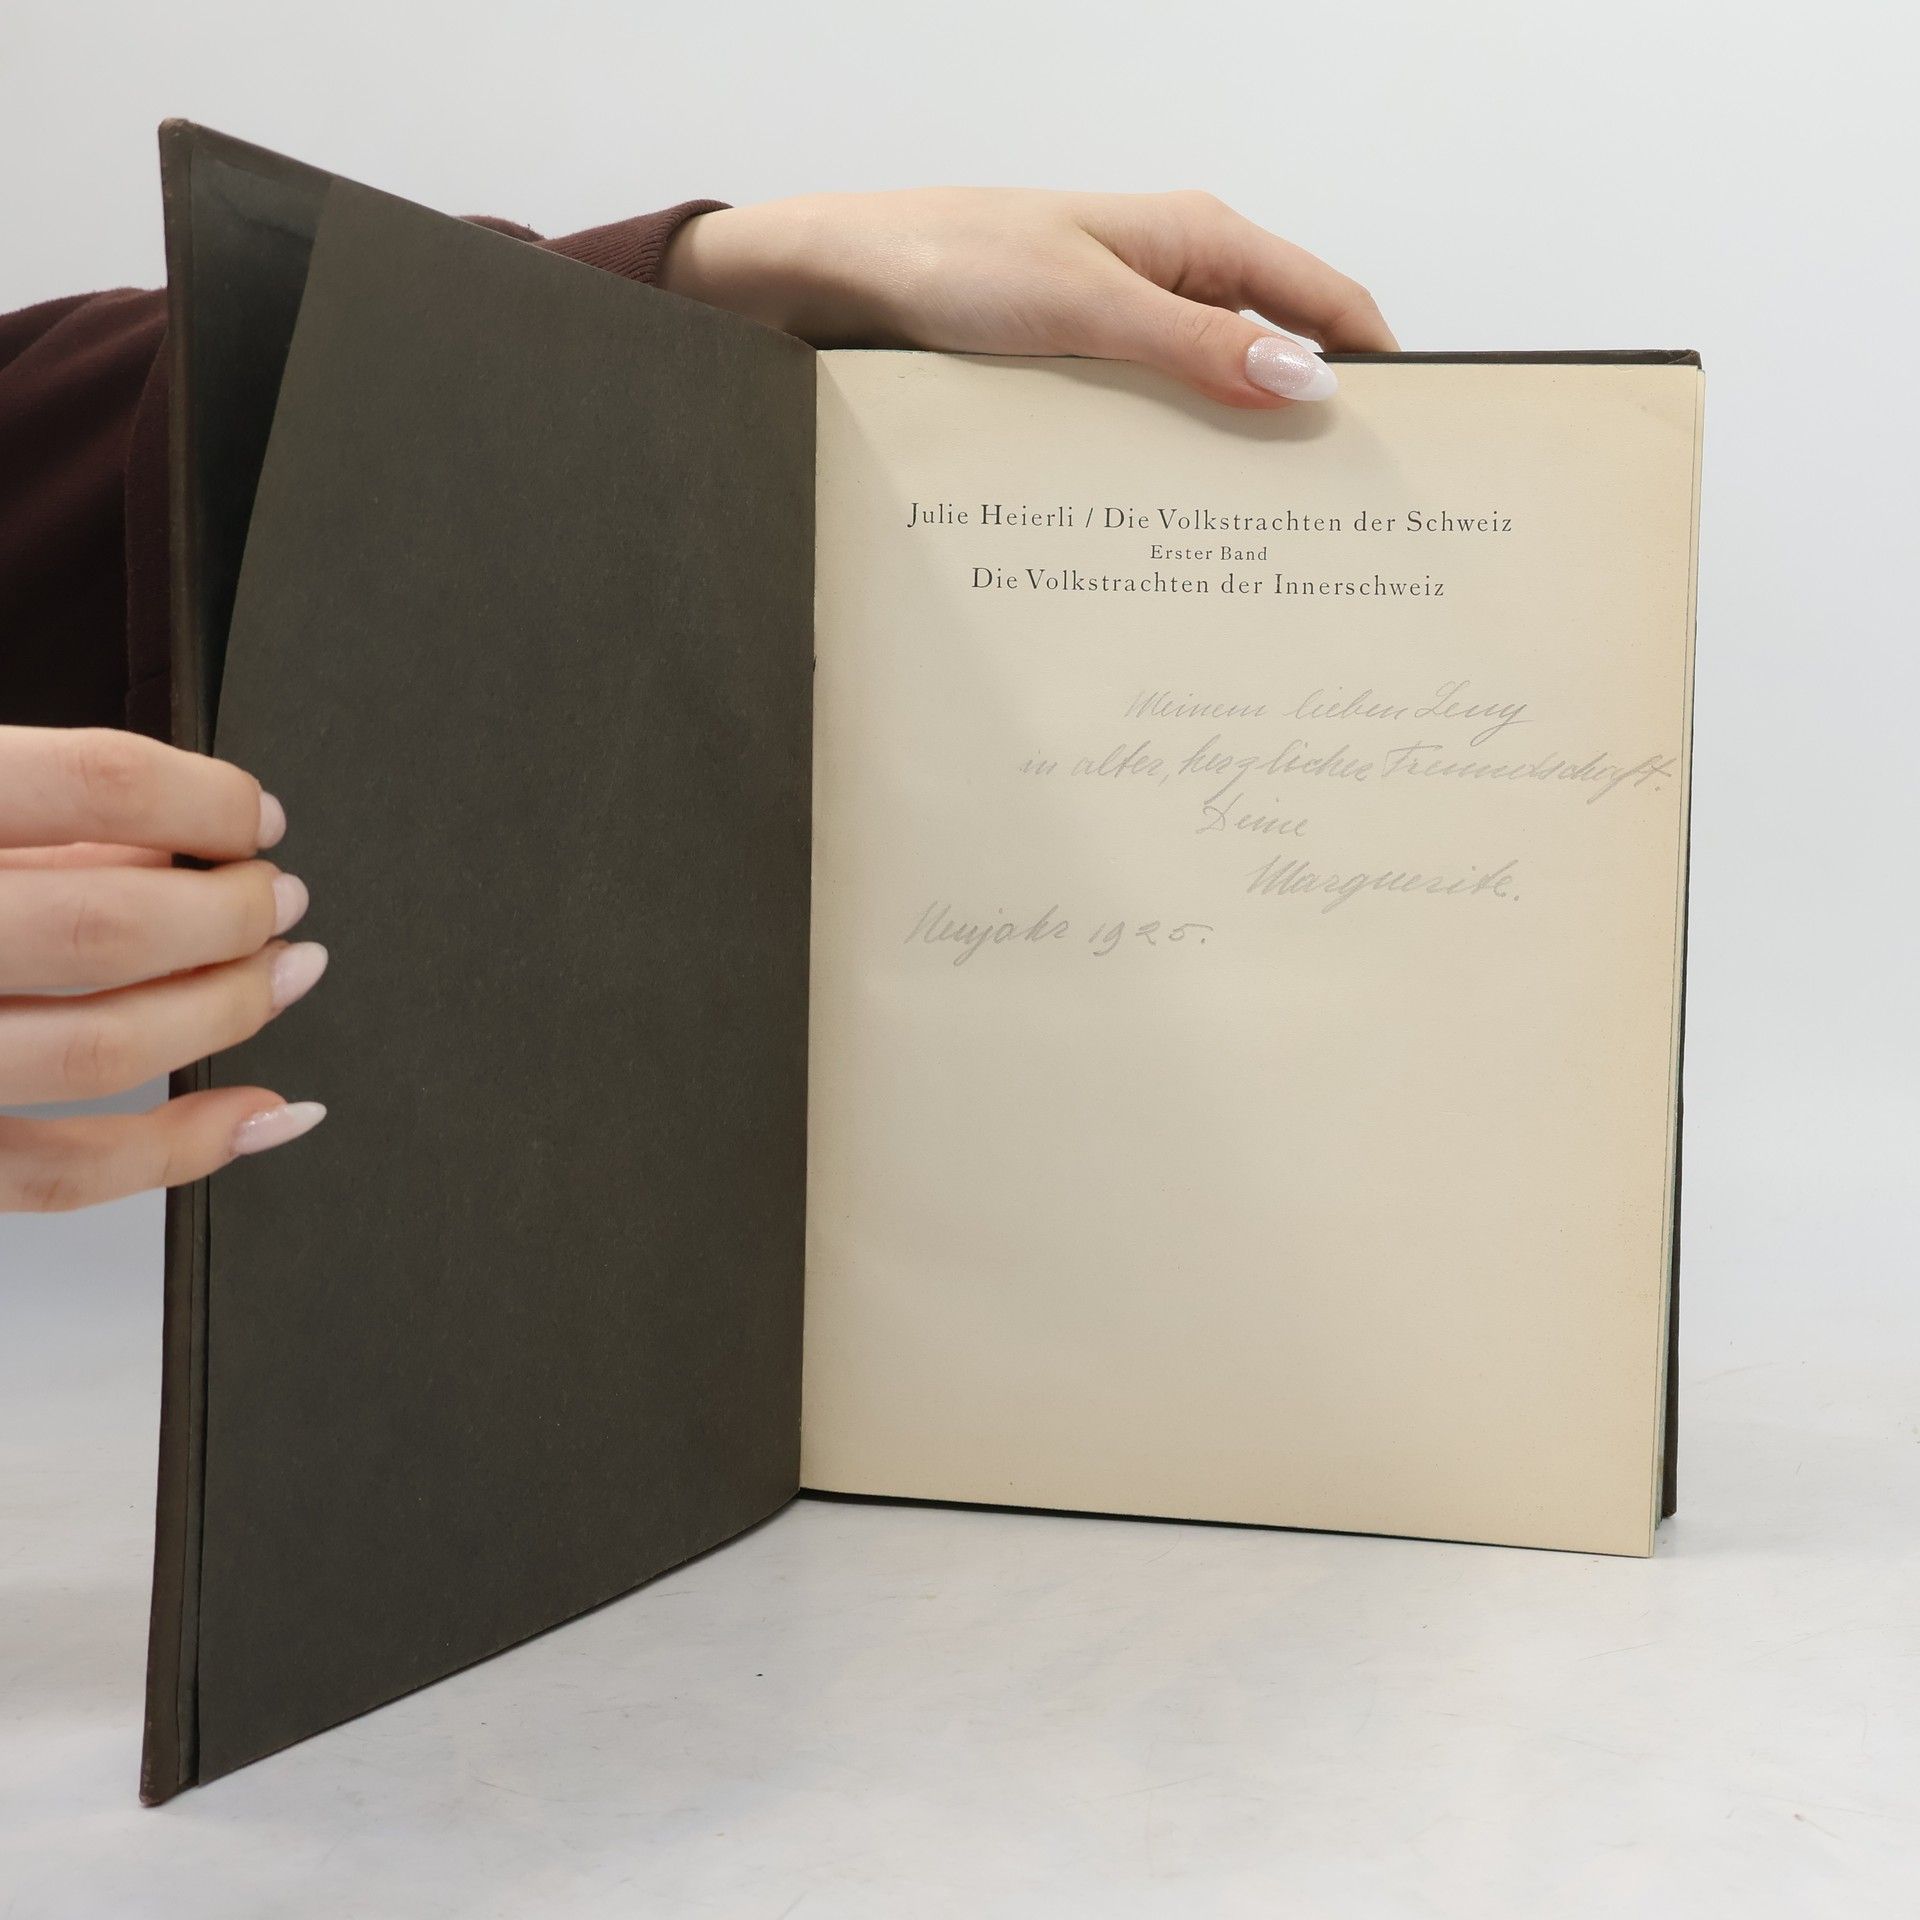 Julie Heierli / Die Volkstrachten der Schweiz
Erster Band
Die Volkstrachten der Innerschweiz
Meinem lieben Leny
in alter, herzlicher Freundschaft.
Deine
Marguerite.
Neujahr 1925.